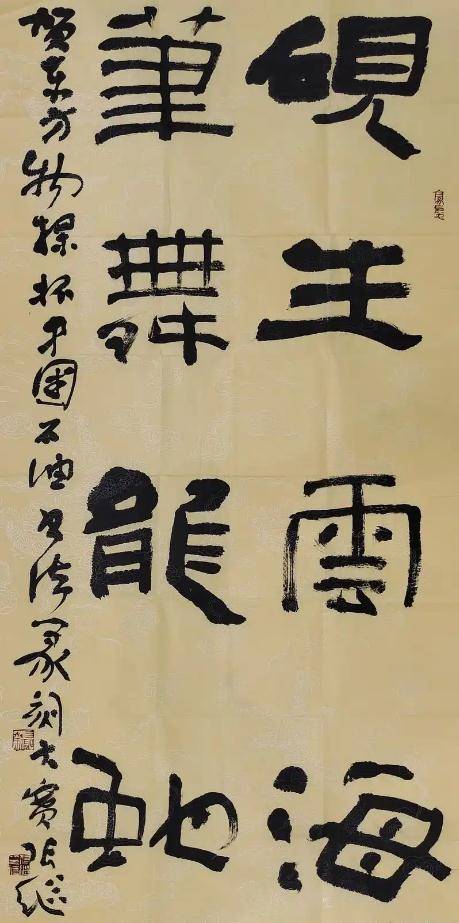 硯生雲海
筆舞龍虵
賀東方物探杯中國石油書法篆刻大賽張继